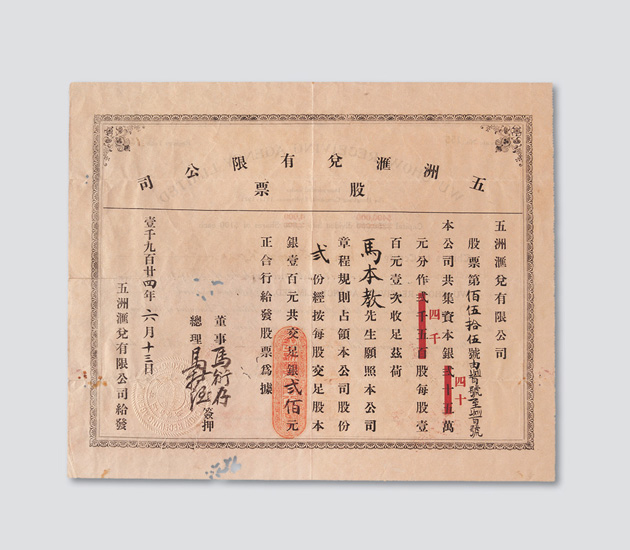 五洲滙兌有限公司
股票
五洲滙兌有限公司
股票第佰伍拾伍號由號至號
本公司共集資本銀弍十五萬
四十
元分作弍千五百股每股壹
四千
百元壹次收足茲荷
馬本教先生願照本公司
章程規則占領本公司股份
弍份經按每股交足股本
銀壹百元共交足銀弍佰元
正合行給發股票爲據
董事馬
總理
簽押
壹千九百廿四年六月十三日
五洲滙兌有限公司給發